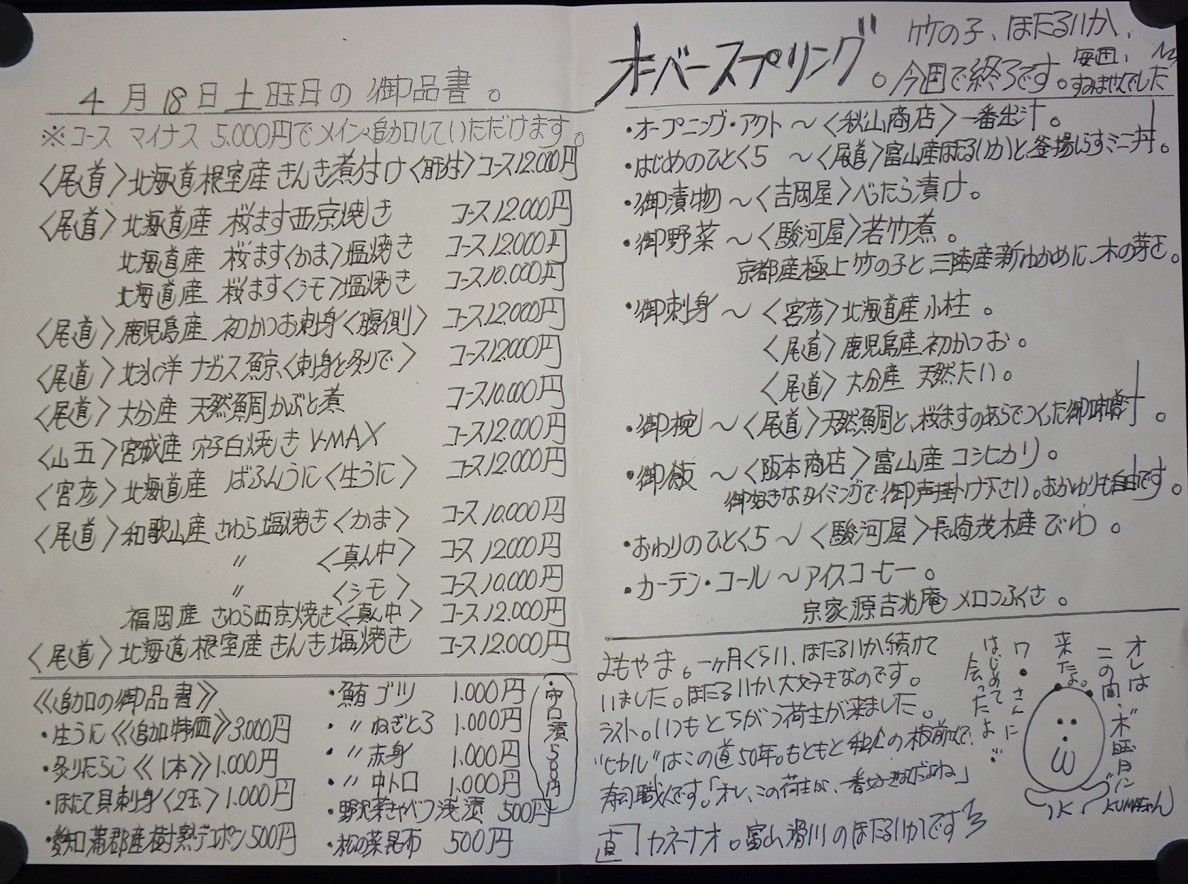 4月18日土曜日の御品書。
※コース マイナス 5.000円でメイン追加していただけます。
〈尾道〉北海道根室産きんき煮付け〈肝付〉コース12.000円
〈尾道〉北海道産 桜ます西京焼き コース12.000円
北海道産 桜ます〈かま〉塩焼き コース12.000円
北海道産 桜ます〈シモ〉塩焼き コース10.000円
〈尾道〉鹿児島産 初かつお刺身〈腹側〉 コース12.000円
〈尾道〉北氷洋 ナガス鯨〈刺身と炙りで〉 コース12.000円
〈尾道〉大分産 天然鯛かぶと煮 コース10.000円
〈山五〉宮城産 穴子白焼き V-MAX コース12.000円
〈宮彦〉北海道産 ばふんうに〈生うに〉 コース12.000円
〈尾道〉和歌山産 さわら塩焼き〈かま〉 コース10.000円
〃 〈真ん中〉 コース12.000円
〃 〈シモ〉 コース10.000円
福岡産 さわら西京焼き〈真ん中〉 コース12.000円
〈尾道〉北海道根室産きんき塩焼き コース12.000円
《追加の御品書》
・生うに《追加特価》3.000円
・炙りたらこ《1本》1.000円
・ほたて貝刺身〈2玉〉1.000円
・愛知蒲郡産樹熟デコポン500円
・鮪ゴツ 1.000円
・〃ねぎとろ 1.000円
・〃赤身 1.000円
・〃中トロ 1.000円
・野沢菜きゃべつ浅漬 500円
・松の葉昆布 500円
オーバースプリング。
竹の子、ほたるいか、
今週で終了です。
毎週、
すみませんでした
・オープニング・アクト～〈秋山商店〉一番出汁。
・はじめのひとくち ～〈尾道〉富山産ほたるいかと、釜揚しらすミニ丼。
・御漬物～〈吉岡屋〉べったら漬け。
・御野菜～〈駿河屋〉若竹煮。
京都産極上竹の子と三陸産新わかめに、木の芽を。
・御刺身～〈宮彦〉北海道産小柱。
〈尾道〉鹿児島産初かつお。
〈尾道〉大分産 天然たい。
・御椀～〈尾道〉天然鯛と、桜ますのあらでつくった御味噌汁。
・御飯～〈阪本商店〉富山産コシヒカリ。
御好きなタイミングで御声掛け下さい。おかわりも自由です。
・おわりのひとくち～〈駿河屋〉長崎茂木産びわ。
・カーテン・コール～アイスコーヒー。
宗家源吉兆庵メロンふくさ。
よもやま。一ヶ月くらい、ほたるいか続けて
いました。ほたるいか大好きなのです。
ラスト。いつもとちがう荷主が来ました。
"ヒカル"はこの道50年。もともと
寿司職人です。「オレ、この荷主が、一番好きなんだよね」
直 カネナオ。富山滑川のほたるいかです
オレは
この間・ボ曜日に
来たよ。
ワ・さんに
はじめて
会ったよ・・
KUMAちゃん